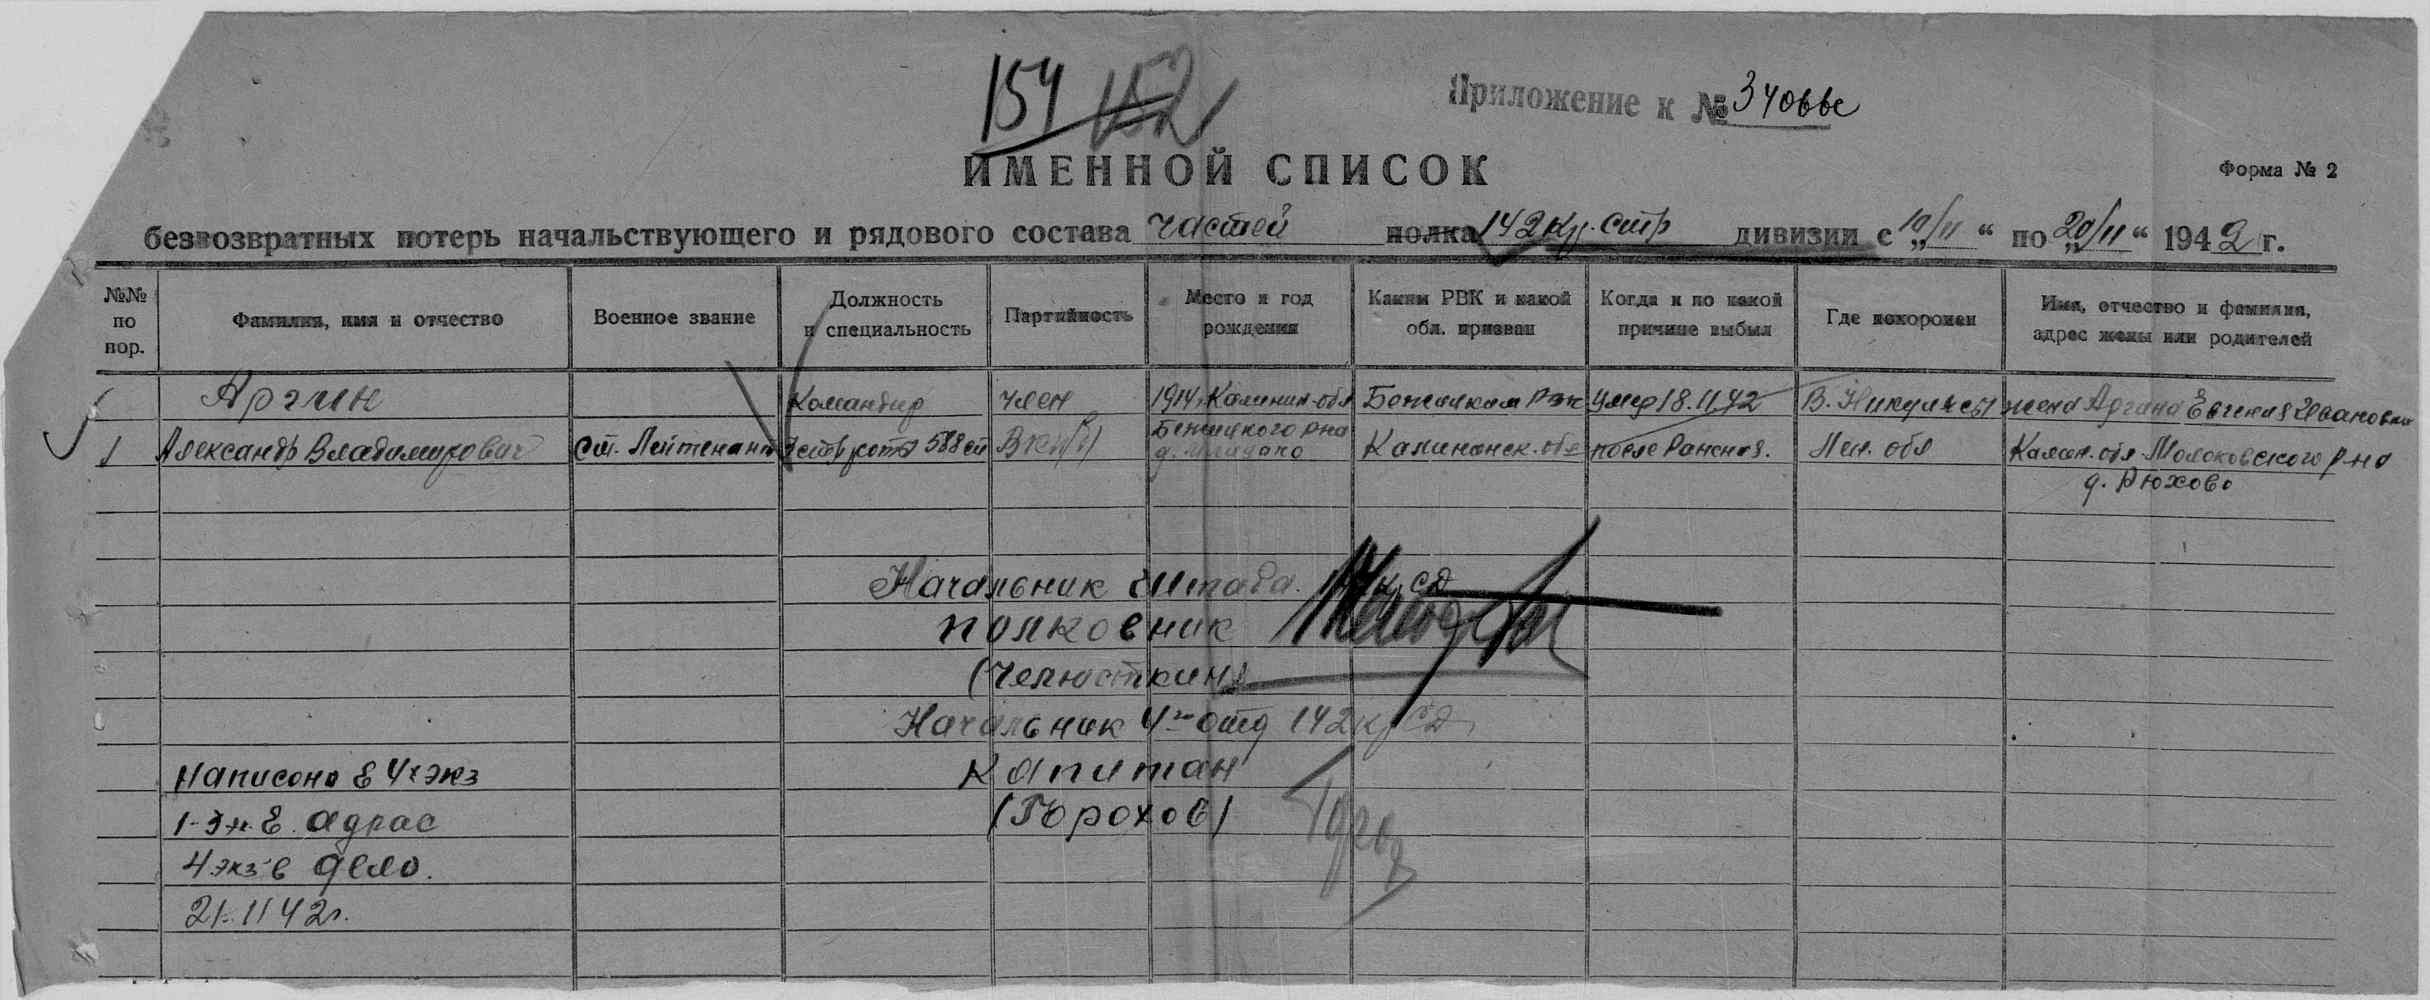 154 152
Приложение к № 34066с
ИМЕННОЙ СПИСОК
Форма № 2
безвозвратных потерь начальствующего и рядового состава частей полка 142 кр. стр дивизии с „10/11“ по „20/11“ 1942 г.
№№ по пор.
Фамилия, имя и отчество
Военное звание
Должность и специальность
Партийность
Место и год рождения
Каким РВК и какой обл. призван
Когда и по какой причине выбыл
Где похоронен
Имя, отчество и фамилия, адрес жены или родителей
1
Аргин
Александр Владимирович
ст. Лейтенант
Командир
стр роты 588 сп
член
ВКП(б)
1914, Калинин. обл
Бежецкого р-на
Бежецким РВК
Калининск. обл
умер 18.11.42
после Ранения.
В. Никулясы
Лен. обл
жена Аргина Евгения Ивановна
Калин. обл. Молоковского р-на
д. Рюхово
Начальник Штаба кр СД
полковник
(Челюсткин)
Начальник 4го отд 142 кр СД
Капитан
(Горохов)
Написано в 4х экз
1-3 эк. в адрас
4 экз в дело.
21.11 42 г.